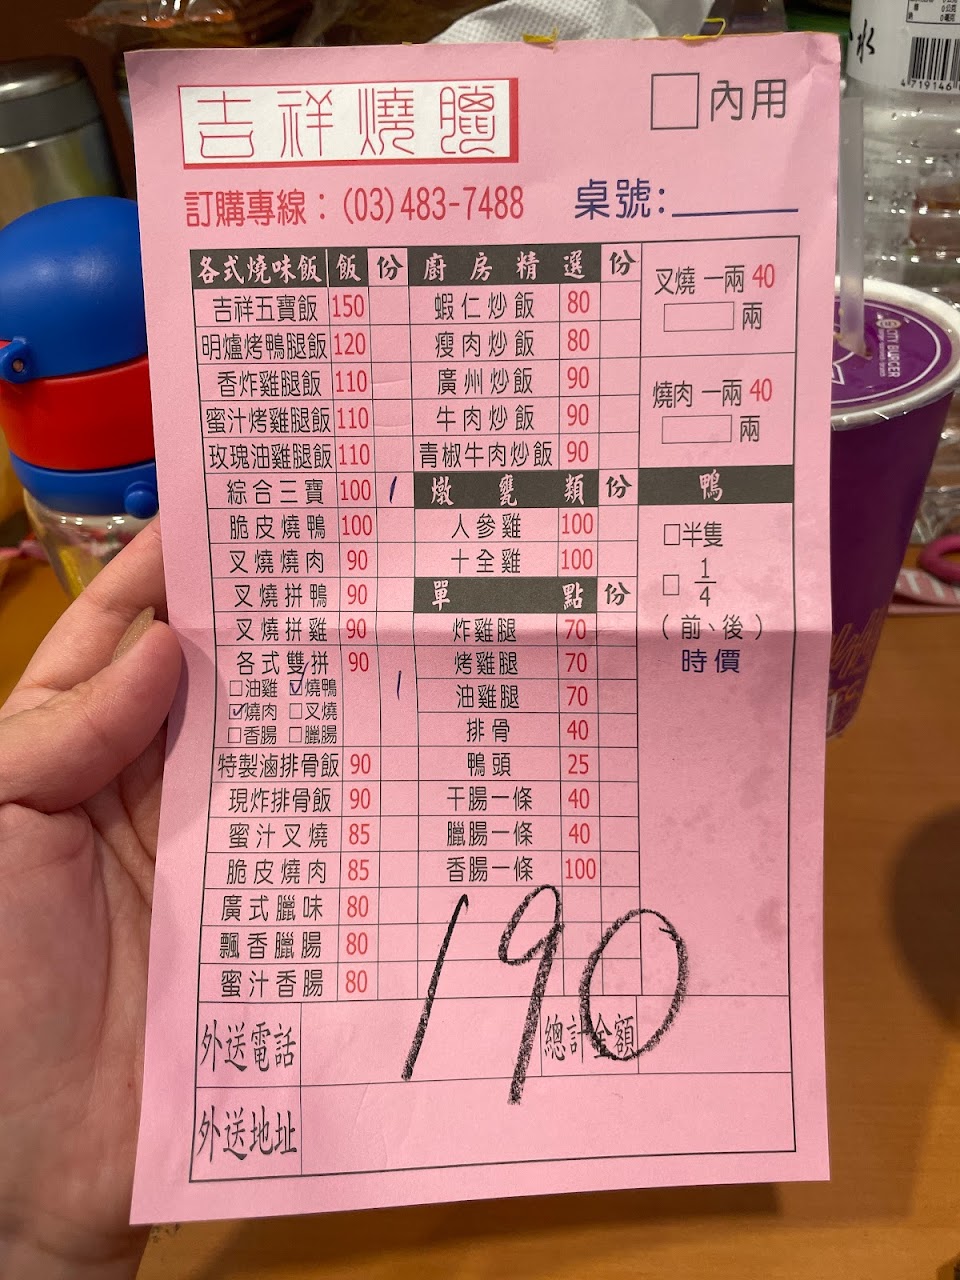 吉祥燒臘
□內用
訂購專線：(03)483-7488
桌號:
各式燒味飯 飯 份
吉祥五寶飯 150
明爐烤鴨腿飯 120
香炸雞腿飯 110
蜜汁烤雞腿飯 110
玫瑰油雞腿飯 110
綜合三寶 100 1
脆皮燒鴨 100
叉燒燒肉 90
叉燒拼鴨 90
叉燒拼雞 90
各式雙拼 90 1
□油雞 ☑燒鴨
☑燒肉 □叉燒
□香腸 □臘腸
特製滷排骨飯 90
現炸排骨飯 90
蜜汁叉燒 85
脆皮燒肉 85
廣式臘味 80
飄香臘腸 80
蜜汁香腸 80
廚房精選 份
蝦仁炒飯 80
瘦肉炒飯 80
廣州炒飯 90
牛肉炒飯 90
青椒牛肉炒飯 90
燉甕類 份
人參雞 100
十全雞 100
單點 份
炸雞腿 70
烤雞腿 70
油雞腿 70
排骨 40
鴨頭 25
干腸一條 40
臘腸一條 40
香腸一條 100
叉燒 一兩 40
兩
燒肉 一兩 40
兩
鴨
□半隻
□ 1/4
(前、後)
時價
190
外送電話
總計金額
外送地址
CITY BURGER
水
4 719146